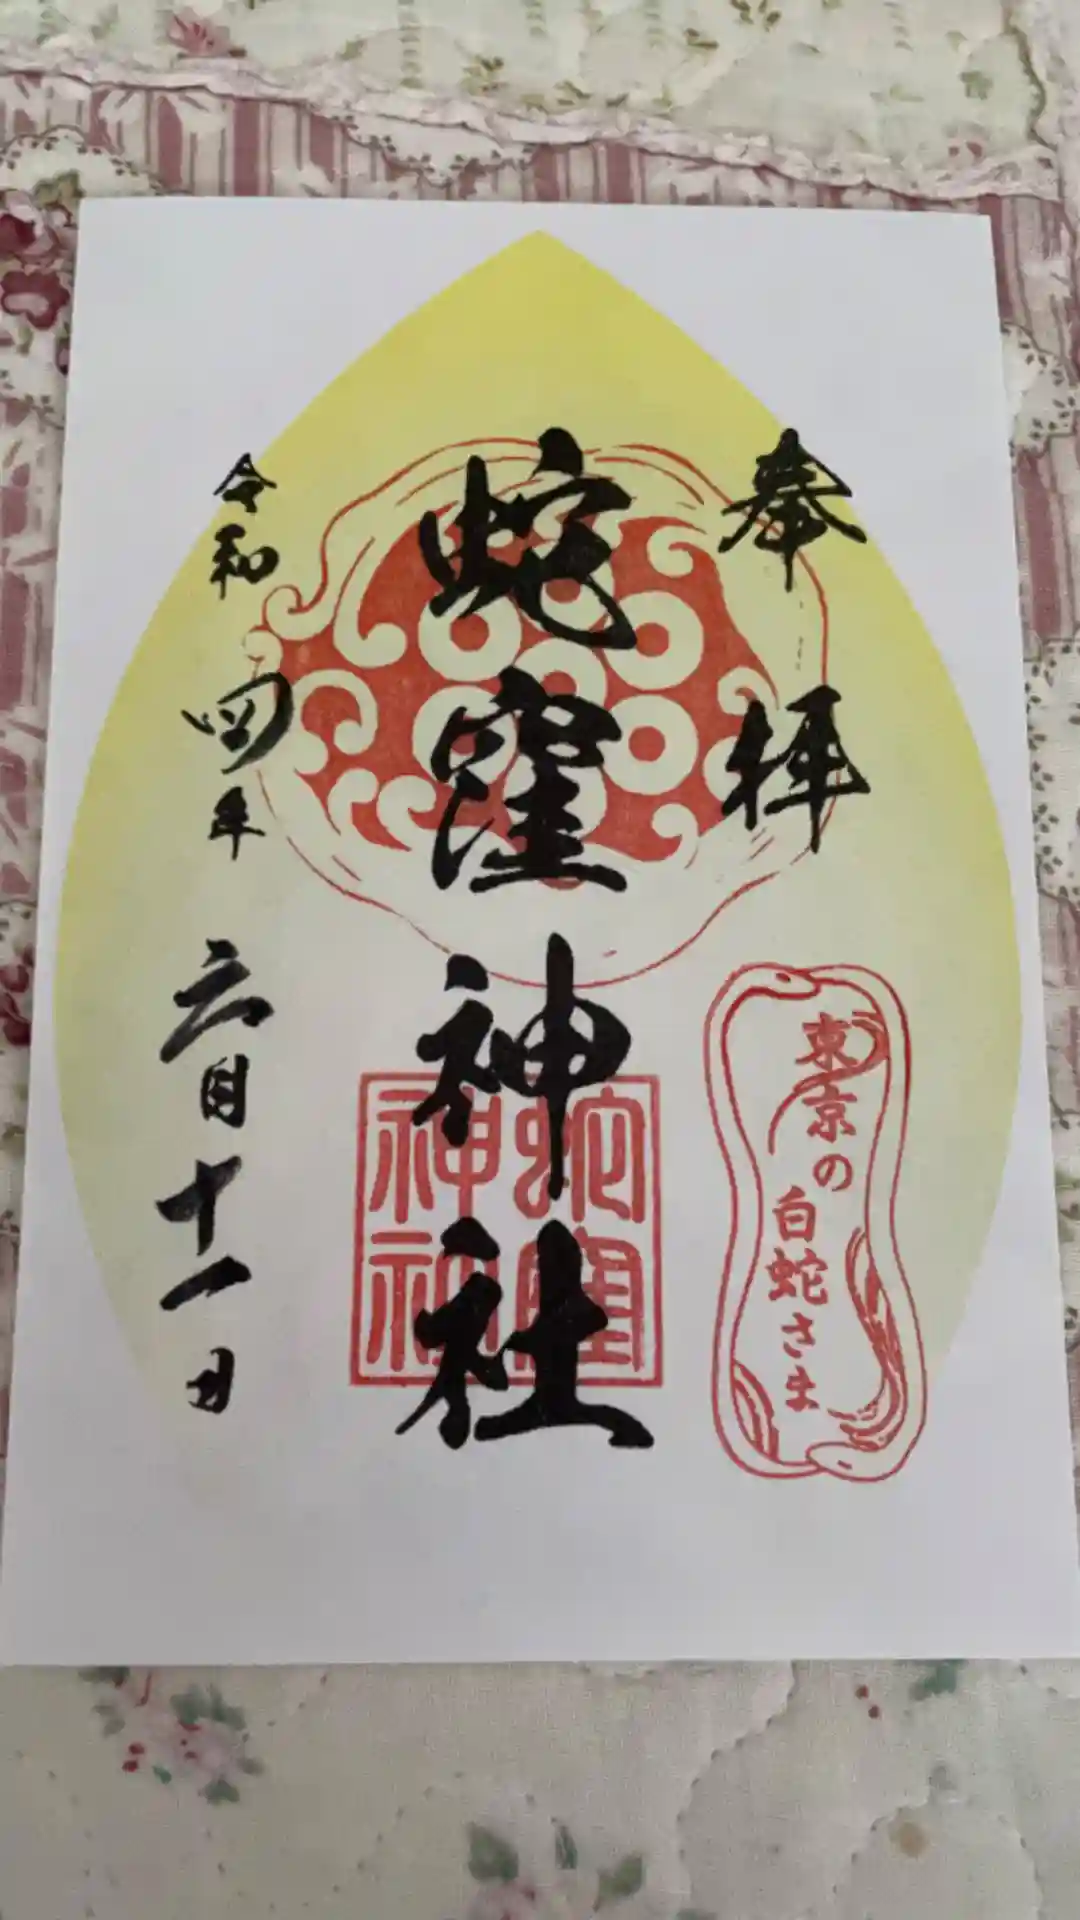 奉拝
東京の
白蛇さま
蛇窪神社
蛇窪
神社
令和四年六月十一日